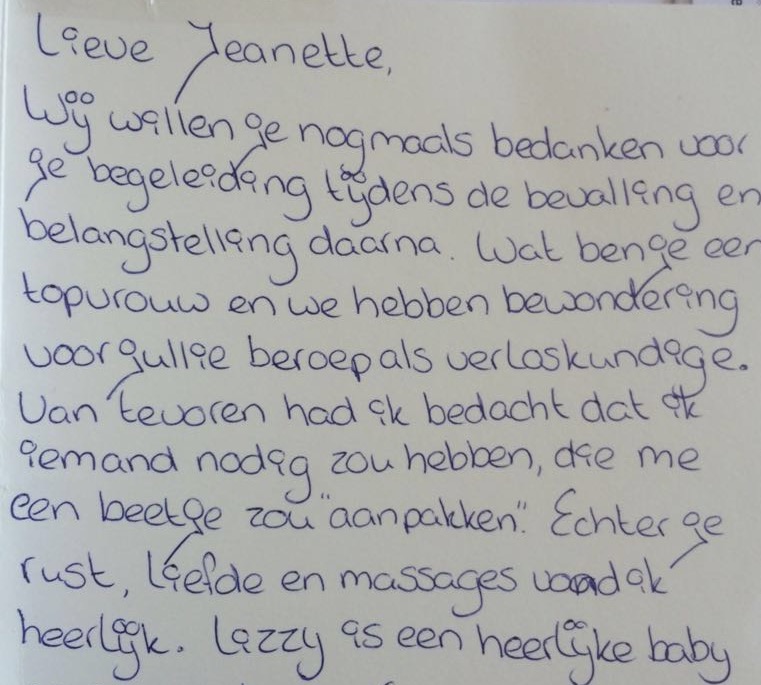 Lieve Jeanette,
Wij willen je nogmaals bedanken voor
je begeleiding tijdens de bevalling en
belangstelling daarna. Wat ben je een
topvrouw en we hebben bewondering
voor jullie beroep als verloskundige.
Van tevoren had ik bedacht dat ik
iemand nodig zou hebben, die me
een beetje zou "aanpakken". Echter je
rust, liefde en massages vond ik
heerlijk. Lizzy is een heerlijke baby